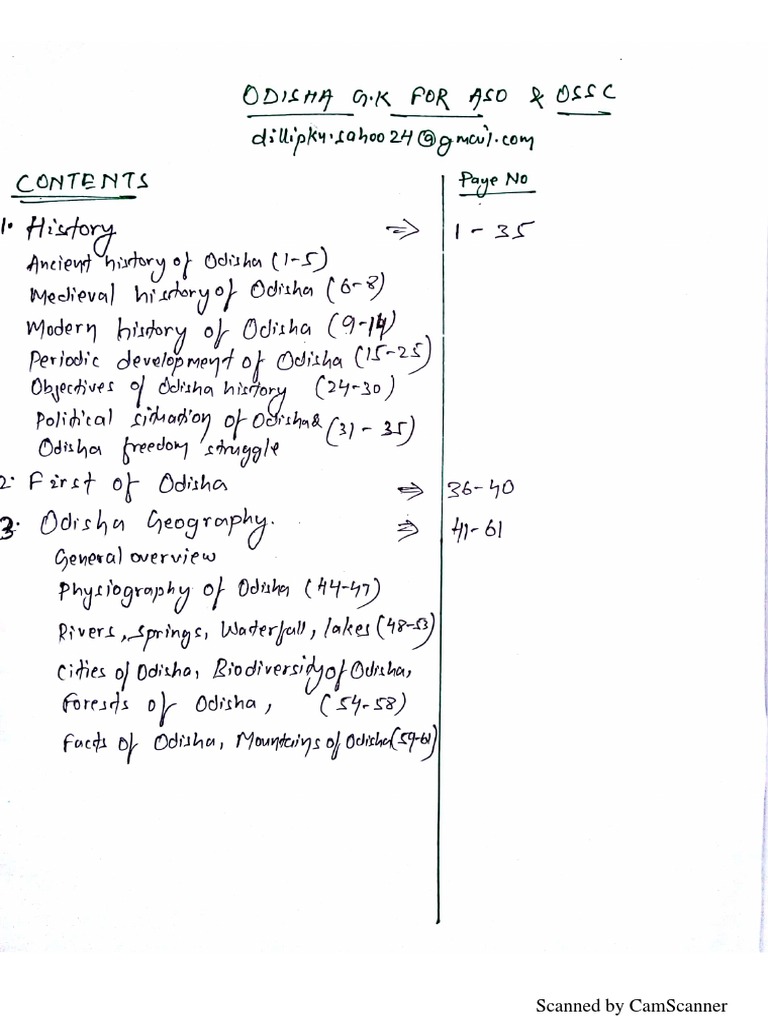 ODISHA G.K FOR ASO & OSSC
dillipku.sahoo24@gmail.com
CONTENTS Page No
1. History ⇒ 1 - 35
Ancient history of Odisha (1-5)
Medieval history of Odisha (6-8)
Modern history of Odisha (9-14)
Periodic development of Odisha (15-25)
Objectives of Odisha history (24-30)
Political situation of Odisha & (31 - 35)
Odisha freedom struggle
2. First of Odisha ⇒ 36-40
3. Odisha Geography. ⇒ 41-61
General overview
Physiography of Odisha (44-47)
Rivers, Springs, Waterfall, lakes (48-53)
Cities of Odisha, Biodiversity of Odisha,
Forests of Odisha, (54-58)
Facts of Odisha, Mountains of Odisha (59-61)
Scanned by CamScanner